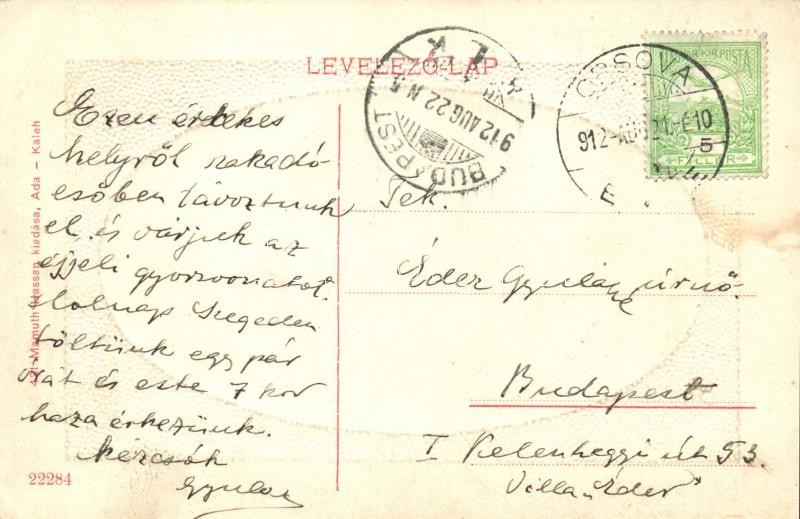 LEVELEZŐ-LAP
Ezen érdekes
helyről szakadó
esőben távoztunk
el és várjuk az
éjjeli gyorsvonatot.
Holnap Szegeden
töltünk egy pár
órát és este 7 kor
haza érkezünk.
Kézcsók
Gyula
Mamuth Hassan kiadása, Ada - Kaleh
22284
BUDAPEST
912 AUG 22 N5
ORSOVA
POSTA
5
FILLÉR
Tek.
Éder Gyuláné úrnő.
Budapest
I Kelenhegyi út 53.
Villa „Éder"